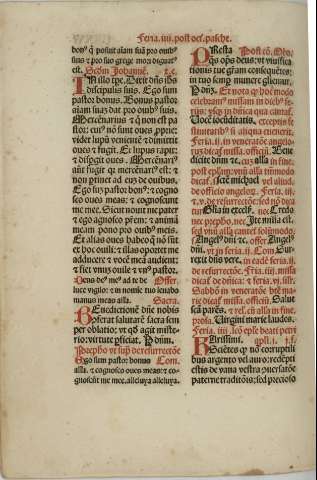 Feria. iiii. post oct. pasche.
bonꝰ q̇ posuit aīam suā pro ouibꝰ
suis ⁊ pro suo grege mori dignatꝰ
est. Scd̄m Johannē. x.c.
IN illo tp̄e. Dixit dn̄s ih̄s
discipulis suis. Ego sum
pastor bonus. Bonus pastor
aīam suaꝫ dat pro ouibꝰ suis.
Mercēnarius aūt ⁊ q̇ non est pa
stor: cuiꝰ nō sunt oues ꝓprie:
videt lupū venientē ⁊ dimittit
oues ⁊ fugit. Et lupus rapit:
⁊ dispgit oues. Mercēnariꝰ
aūt fugit q̇ꝛ mercēnariꝰ est: ⁊
non ꝑtinet ad eū de ouibus.
Ego sum pastor bonꝰ: ⁊ cogno
sco oues meas: ⁊ cognoscunt
me mee. Sicut nouit me pater
⁊ ego agnosco p̄rem: ⁊ animā
meam pono pro ouibꝰ meis.
Et alias oues habeo q̄ nō sūt
ex hoc ouili: ⁊ illas oportet me
adducere ⁊ vocē meā audient:
⁊ fiet vnū ouile ⁊ vnꝰ pastor.
Deus deꝰ meꝰ ad te de Offer.
luce vigilo: ⁊ in noīe tuo leuabo
manus meas alla. Sacra.
BEnedictionē dn̄e nobis
ꝯferat salutarē sacra sem
per oblatio: vt qd̄ agit miste
rio: virtute ꝑficiat. P dn̄m.
Prephō vt suꝑ de resurrectōe
Ego sum pastor bonus Com.
alla. ⁊ cognosco oues meas: ⁊ co-
gnoscūt me mee, alleluya alleluya.
PResta Post cō. Orō.
q̄s oīps deus: vt viuifica
tionis tue gr̄am consequētes:
in tuo semꝑ munere gliemur.
P dn̄m. Et nota q̇ hoc modo
celebranꝰ missam in diebꝰ fe-
rijs: vsqꝫ in dn̄ica qua cantat̄.
Vocē iocūditatis. exceptis fe
stiuitatibꝰ si aliqua euenerit.
Feria. ii. in veneratōe angelo-
rum dicat̄ missa. officiū. Bene
dicite dn̄m ꝛc. cuꝫ alla in fine.
post epl̄am: vnū alla tm̄mō
dicat̄. Scē michael vel aliud.
de officio angeloꝝ. Feria. iii.
⁊. v. de resurrectōe: sed nō dica
tur Gl̄ia in excelsꝭ. nec Credo
nec prephō. nec Ite missa est.
sed vnū alla cantet̄ solūmodo.
Angelꝰ dn̄i ꝛc. offer Angelꝰ
dn̄i. vt in feria. ij. Com̄ Sur-
rexit dn̄s vere. in eadē feria. ij.
de resurrectōe. Feria. iiii. missa
dicat̄ de dn̄ica: ⁊ feria. vi. sil̄r.
Sabbō in veneratōe btē̄ ma-
rie dicat̄ missa. officiū. Salue
scā parēs. ⁊ rel. cū alla in fine.
prosa. Virgini marie laudes.
Feria. iiii. Lcō ep̄le beati petri
KArissimi. apl̄i. i. j.f.
Sciētes q̇ nō corruptili
bus argento vel auro: redēpti
estis de vana vestra ꝯuersatōe
paterne traditiōis: sed precioso